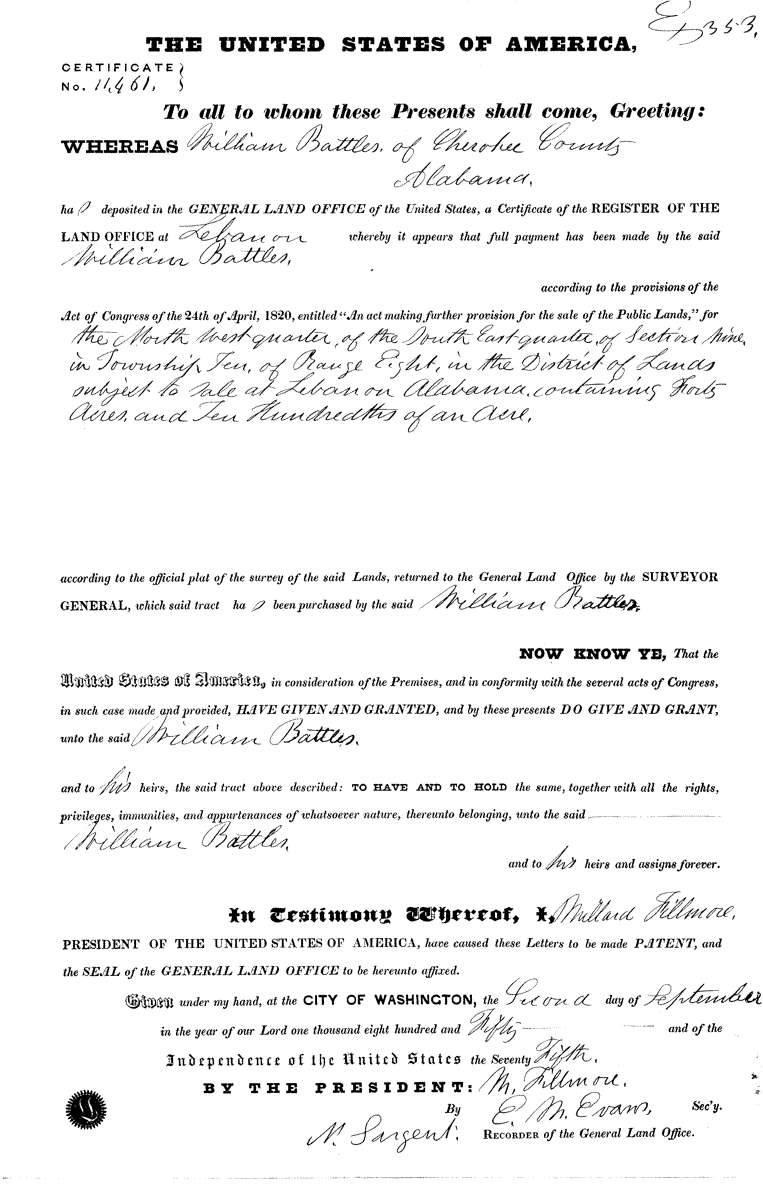 Ex 353.
THE UNITED STATES OF AMERICA,
CERTIFICATE
No. 11,461,
To all to whom these Presents shall come, Greeting:
WHEREAS William Battles. of Cherokee County
Alabama.
ha s deposited in the GENERAL LAND OFFICE of the United States, a Certificate of the REGISTER OF THE
LAND OFFICE at Lebanon whereby it appears that full payment has been made by the said
William Battles.
according to the provisions of the
Act of Congress of the 24th of April, 1820, entitled "An act making further provision for the sale of the Public Lands," for
the North West quarter, of the South East quarter, of Section Nine,
in Township Ten, of Range Eight, in the District of Lands
subject to sale at Lebanon Alabama. containing Forty
Acres. and Ten Hundredths of an Acre.
according to the official plat of the survey of the said Lands, returned to the General Land Office by the SURVEYOR
GENERAL, which said tract ha s been purchased by the said William Battles.
NOW KNOW YE, That the
United States of America, in consideration of the Premises, and in conformity with the several acts of Congress,
in such case made and provided, HAVE GIVEN AND GRANTED, and by these presents DO GIVE AND GRANT,
unto the said William Battles.
and to his heirs, the said tract above described: TO HAVE AND TO HOLD the same, together with all the rights,
privileges, immunities, and appurtenances of whatsoever nature, thereunto belonging, unto the said
William Battles.
and to his heirs and assigns forever.
In Testimony Whereof, I, Millard Fillmore.
PRESIDENT OF THE UNITED STATES OF AMERICA, have caused these Letters to be made PATENT, and
the SEAL of the GENERAL LAND OFFICE to be hereunto affixed.
Given under my hand, at the CITY OF WASHINGTON, the Second day of September
in the year of our Lord one thousand eight hundred and Fifty and of the
Independence of the United States the Seventy Fifth.
BY THE PRESIDENT: M. Fillmore.
By E. M. Evans, Sec'y.
N. Sargent. RECORDER of the General Land Office.